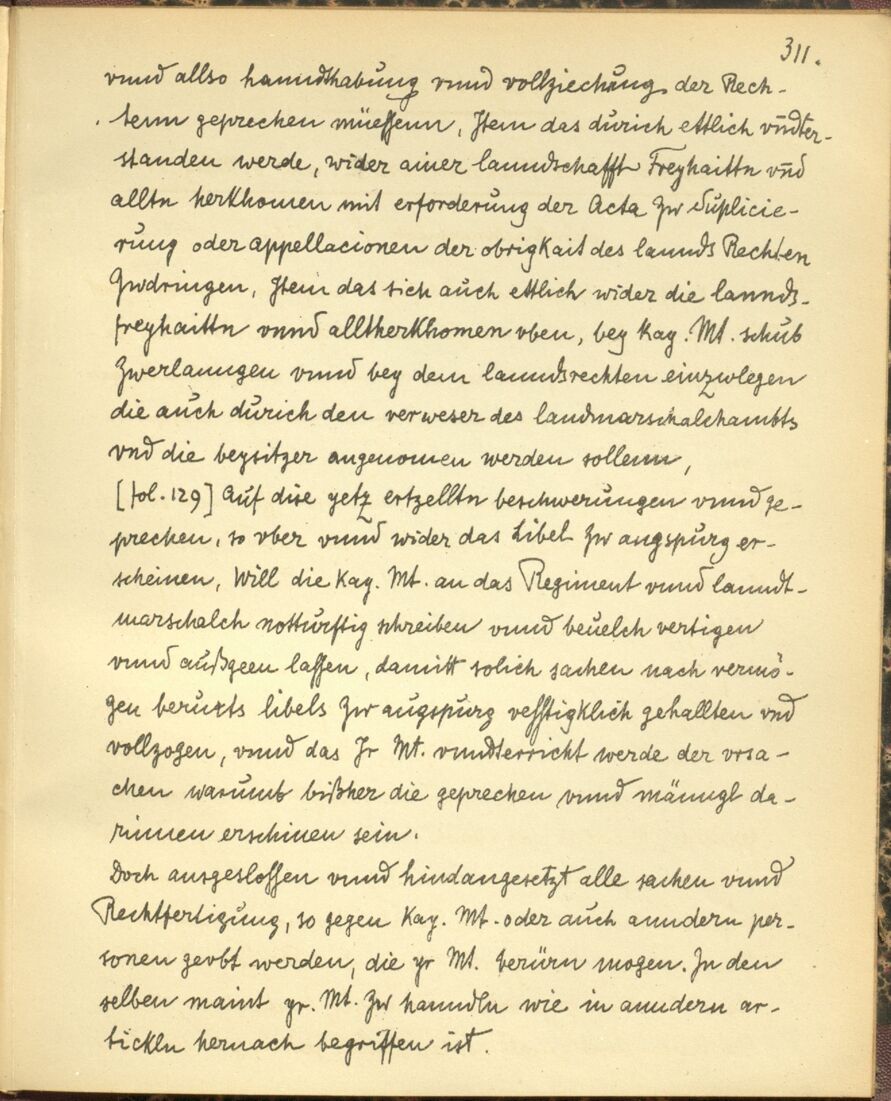 311.
vnnd allso hanndthabung vnnd vollziechung der Rech-
tenn geprechen müessenn, Item das durich ettlich vnndter-
standen werde, wider ainer lanndschafft Freyhaittn vnd
alltn herkhomen mit erforderung der Acta zw duplicie-
rung oder appellacionen der obrigkait des lannds Rechten
zwdringen, Item das sich auch ettlich wider die lannds-
freyhaittn vnnd alltherkhomen vben, bey kay. Mt. schub
zwerlanngen vnnd bey dem lanndsrechten einzwlegen
die auch durich den verweser des landmarschalchambts
vnd die beysitzer angenomen werden sollenn,
[fol. 129] Auf dise yetz ertzelltn beschwerungen vnnd ge-
prechen, so vber vnnd wider das Libel zw augspurg er-
scheinen, Will die kay. Mt. an das Regiment vnnd lanndt-
marschalch notturftig schreiben vnnd beuelch vertigen
vnnd außgeen lassen, damitt solich sachen nach vermö-
gen berurts libels zw augspurg vesstigklich gehallten vnd
vollzogen, vnnd das Jr Mt. vnndterricht werde der vrsa-
chen warumb bißher die geprechen vnnd männgl da-
rinnen erschinen sein.
Doch ausgeslossen vnnd hindangesetzt alle sachen vnnd
Rechtfertigung, so gegen kay. Mt. oder auch anndern per-
sonen gevbt werden, die yr Mt. berürn mogen. In den
selben maint yr. Mt. zw hanndln wie in anndern ar-
tickln hernach begriffen ist.